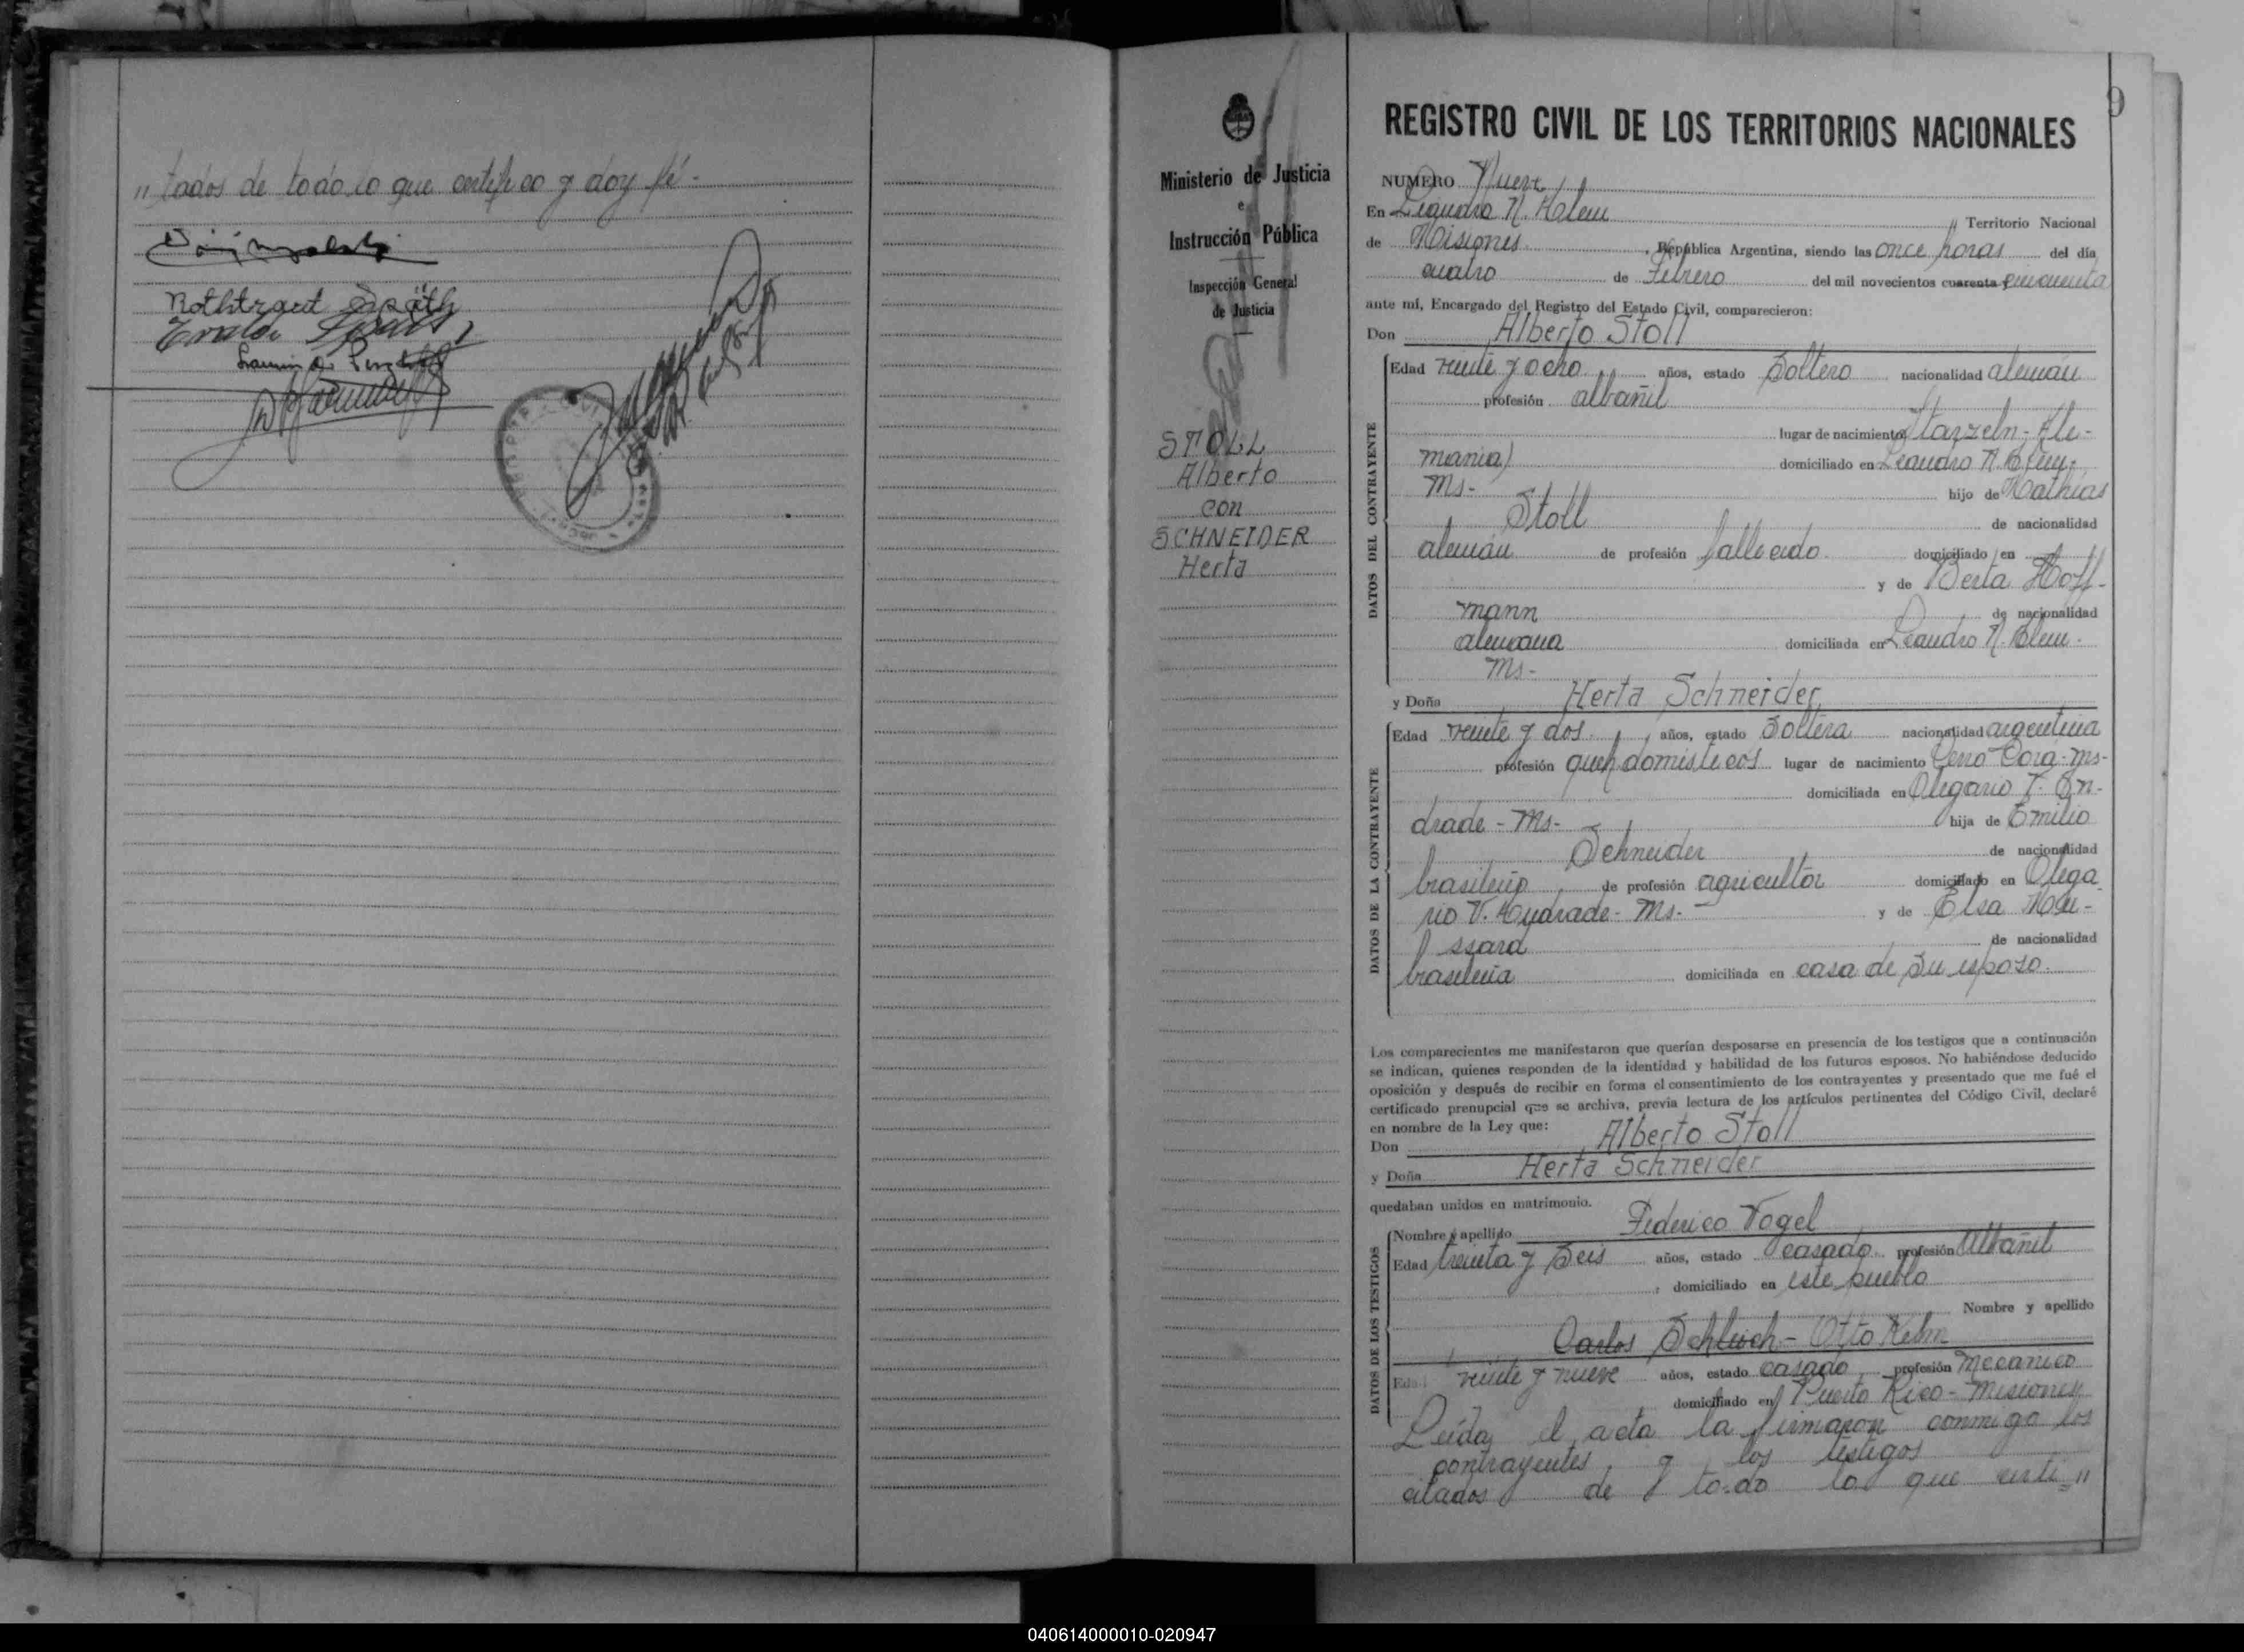 „ tados de todo lo que certifico y doy fé -
Rothtraud Späth
Ministerio de Justicia
e
Instrucción Pública
Inspección General
de Justicia
STOLL
Alberto
con
SCHNEIDER
Herta
9
REGISTRO CIVIL DE LOS TERRITORIOS NACIONALES
NUMERO Nueve
En Leandro N. Alem Territorio Nacional
de Misiones , República Argentina, siendo las once horas del día
cuatro de Febrero del mil novecientos cuarenta y cincuenta
ante mí, Encargado del Registro del Estado Civil, comparecieron:
Don Alberto Stoll
DATOS DEL CONTRAYENTE
Edad veinte y ocho años, estado Soltero nacionalidad alemán
profesión albañil
lugar de nacimiento Starzeln - Ale-
mania) domiciliado en Leandro N. Alem.
Ms- hijo de Mathias
Stoll de nacionalidad
alemán de profesión fallecido domiciliado en
y de Berta Hoff-
mann de nacionalidad
alemana domiciliada en Leandro N. Alem -
Ms-
y Doña Herta Schneider
DATOS DE LA CONTRAYENTE
Edad veinte y dos años, estado Soltera nacionalidad argentina
profesión queh domésticos lugar de nacimiento Cerro Corá - Ms-
domiciliada en Olegario V. An-
drade - Ms- hija de Emilio
Schneider de nacionalidad
brasilero de profesión agricultor domiciliado en Olega
rio V. Andrade - Ms. - y de Elsa
ssara de nacionalidad
brasilera domiciliada en casa de su esposo.
Los comparecientes me manifestaron que querían desposarse en presencia de los testigos que a continuación
se indican, quienes responden de la identidad y habilidad de los futuros esposos. No habiéndose deducido
oposición y después de recibir en forma el consentimiento de los contrayentes y presentado que me fué el
certificado prenupcial que se archiva, previa lectura de los artículos pertinentes del Código Civil, declaré
en nombre de la Ley que:
Don Alberto Stoll
y Doña Herta Schneider
quedaban unidos en matrimonio.
DATOS DE LOS TESTIGOS
Nombre y apellido Federico Vogel
Edad treinta y seis años, estado casado profesión Albañil
, domiciliado en este pueblo
Nombre y apellido
Carlos Schluch - Otto Kelm
Edad veinte y nueve años, estado casado profesión Mecanico
domiciliado en Puerto Rico - Misiones
Leída el acta la firmaron conmigo los
contrayentes y los testigos
citados de todo lo que certi „
040614000010-020947